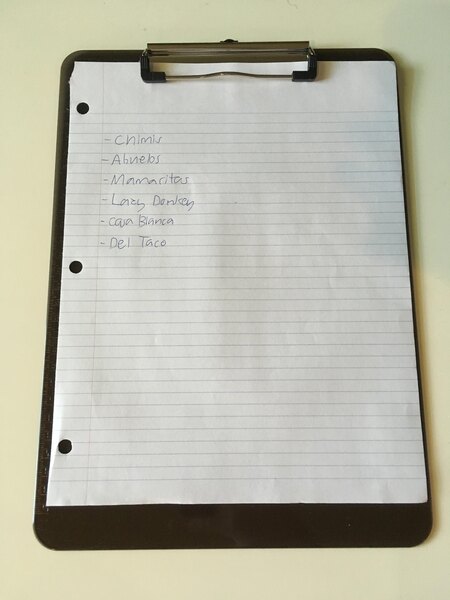 - Chimis
- Abuelos
- Mamacitas
- Lazy Donkey
- Casa Blanca
- Del Taco